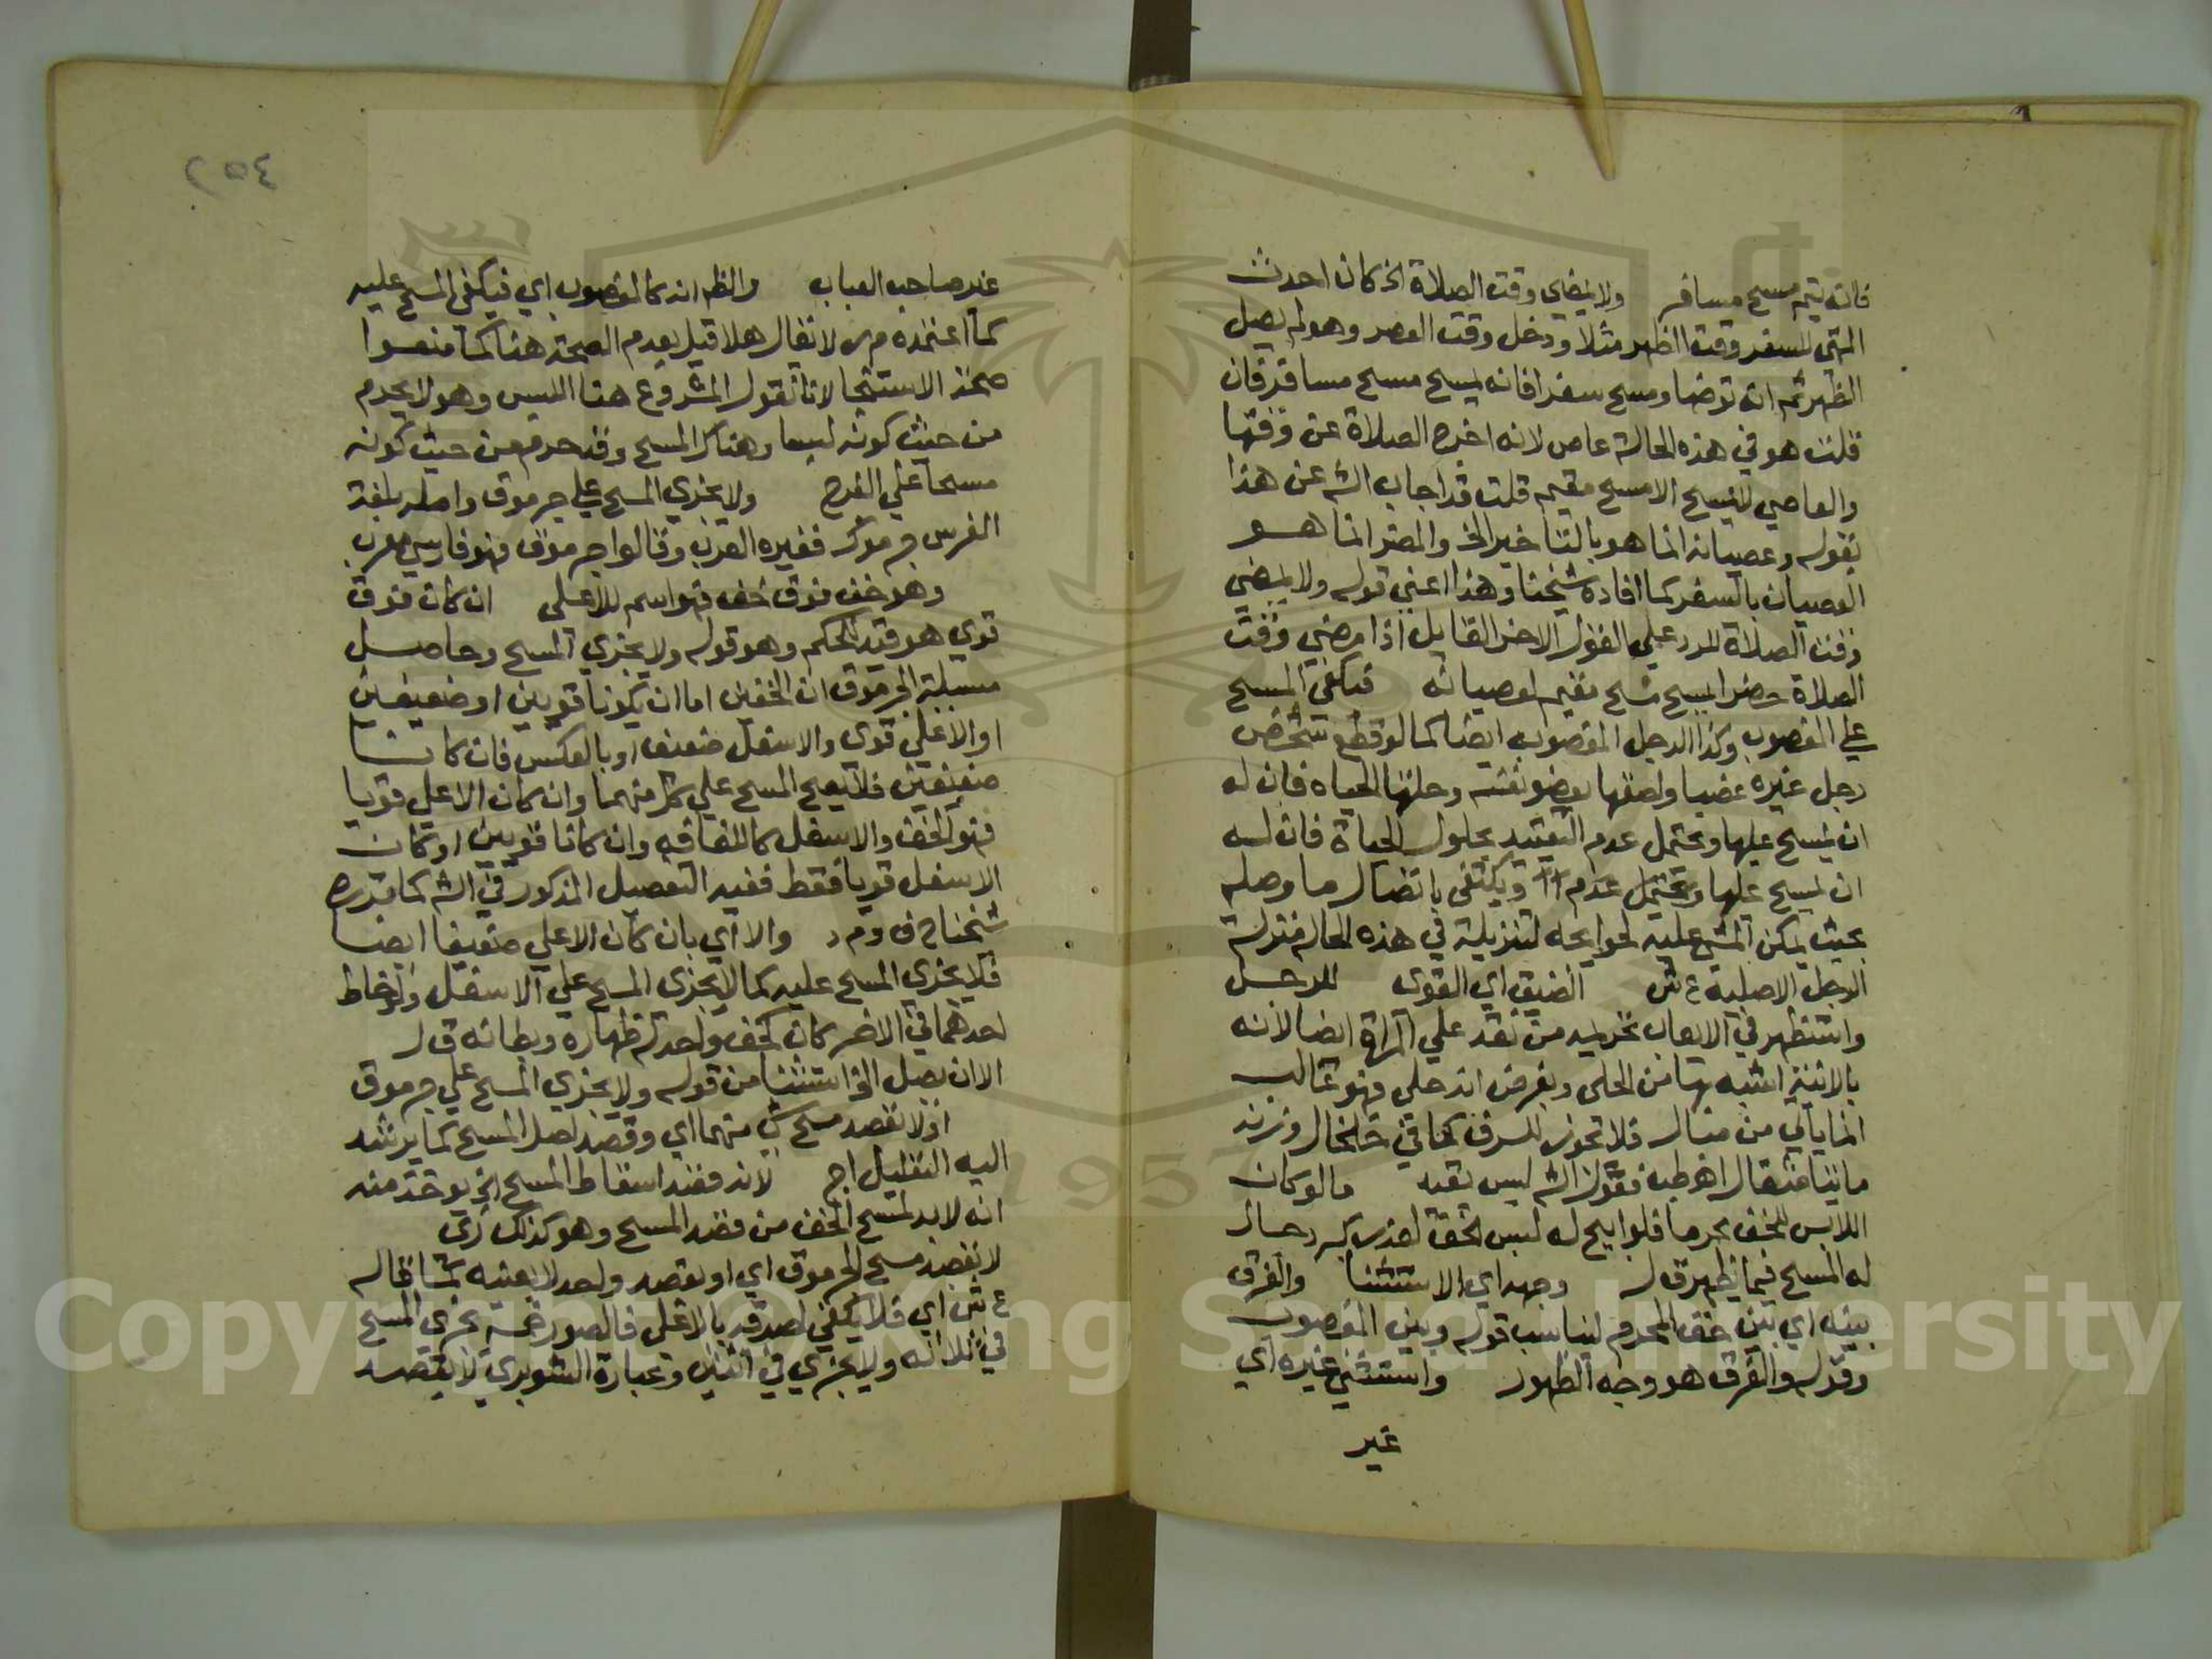 فانه يتم مسح مسافر ولا بمضي وقت الصلاة الخ كان احدث
المتهي للسفر وقت الظهر مثلا ودخل وقت العصر وهو لم يصل
الظهر ثم انه توضا ومسح سفرا فانه يمسح مسح مسافر فان
قلت هو في هذه الحالة عاص لانه اخرج الصلاة عن وقتها
والعاصي لا يمسح الا مسح مقيم قلت قد اجاب الش عن هذا
بقوله وعصيانه انما هو بالتاخير الخ والمضر انما هو
العصيان بالسفر كما افاده شيخنا وهذا اعني قوله ولا بمضي
وقت الصلاة للرد علي القول الاخر القايل اذا مضي وقت
الصلاة حضرا مسح مسح مقيم لعصيانه فيكفي المسح
علي المغصوب وكذا الرجل المغصوبه ايضا كما لو قطع شخص
رجل غيره غصبا ولصقها بعضو نفسه وحلتها الحياه فان له
ان يمسح عليها ويحتمل عدم التقييد بحلول الحياة فان له
ان يمسح عليها ويحتمل عدم ويكتفى باتصال ما وصله
بحيث يمكن المشي عليه لحوايجه لتنزيله في هذه الحاله منزلة
الرجل الاصلية ع ش الضيق اي القوى للرجل
واستظهر في الايعاب تحريمه من نقد علي المراة ايضا لانه
بالانية اشبه منها من الحلى وبفرض انه حلي فهو غالب
انما ياتي من مثال فلا تجوز للسرف كما في خلخال وزنه
مائتا مثقال اهـ طب فقول الش لبس نقد ما لو كان
اللابس للخف محرما فلو ابيح له لبس الخف لعذر كبرد جاز
له المسح فيما يظهر ق ل وجه اي الاستثنا والفرق
بينه اي بين خف المحرم ليناسب قوله وبين المغصوب
وقوله والفرق هو وجه الظهور واستثنى غيره اي
غير
٢٥٤
غير صاحب العباب والظ انه كالمغصوب اي فيكفي المسح عليه
كما اعتمده م ر لا يقال هلا قيل بعدم الصحة هنا كما منعوا
صحة الاستنجا لانا نقول المشروع هنا اللبس وهو لا يحرم
من حيث كونه لبسا وهناك المسح وقد حرم من حيث كونه
مسحا علي الفرج ولا يجزي المسح علي جرموق واصله بلغة
الفرس جرموك فغيره العرب وقالوا جرموق فهو فارسي معرب
وهو خف فوق خف فهو اسم للاعلى ان كان فوق
قوي هو قيد للحكم وهو قوله ولا يجزي المسح وحاصل
مسيلة الجرموق ان الخفين اما ان يكونا قويين او ضعيفين
او الاعلي قوى والاسفل ضعيف او بالعكس فان كانا
ضعيفين فلا يصح المسح علي كل منهما وان كان الاعلي قويا
فهو الخف والاسفل كاللفافه وان كانا قويين او كان
الاسفل قويا فقط ففيه التفصيل المذكور في الش كما قرره
شيخنا ح ف و م د والا اي بان كان الاعلي ضعيفا ايضا
فلا يجزي المسح عليه كما لا يجزى المسح علي الاسفل ولو خاط
احدهما في الاخر كان كخف واحد له ظهاره وبطانه ق ل
الا ان يصل الخ استثنا من قوله ولا يجزي المسح علي جرموق
او لا بقصد مسح ش منهما اي وقصد اصل المسح كما يرشد
اليه التعليل اج لانه قصد اسقاط المسح الخ يوخذ منه
انه لا بد لمسح الخف من قصد المسح وهو كذلك زى
لا بقصد مسح الجرموق اي او بقصد واحد لا بعينه كما قاله
ع ش اي فلا يكفي لصدقه بالاعلى فالصور خمسة يجزى المسح
في ثلاثه ولا يجزي في اثنين وعبارة الشوبري لا بقصد